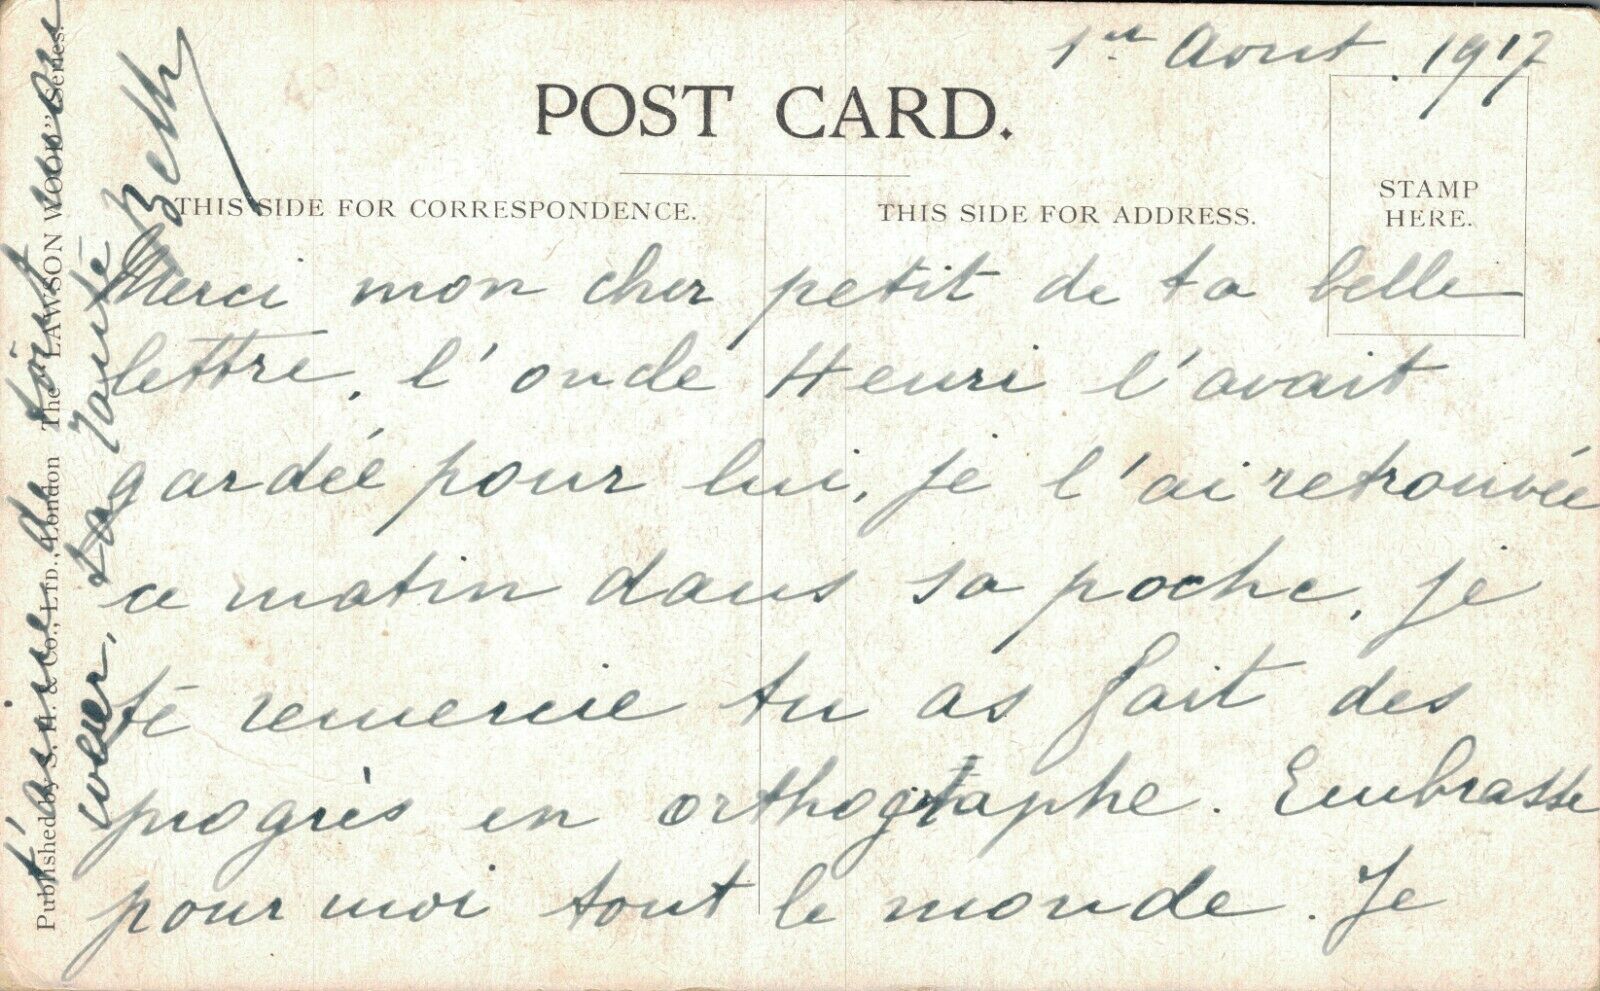 1er Aout 1917
POST CARD.
THIS SIDE FOR CORRESPONDENCE.
THIS SIDE FOR ADDRESS.
STAMP
HERE.
Merci mon cher petit de ta belle
lettre, l'oncle Henri l'avait
gardée pour lui, je l'ai retrouvée
ce matin dans sa poche, je
te remercie tu as fait des
progrès en orthographe. Embrasse
pour moi tout le monde. Je
t'aime de tout mon
coeur, ta Tante
Beth
Published by S. H. & Co., LTD., London The "LAWSON WOOD" Series.